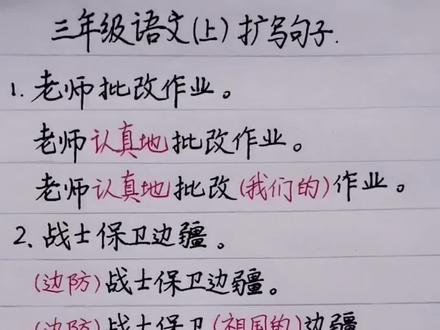 三年级语文(上)扩写句子.
1.老师批改作业。
老师认真地批改作业。
老师认真地批改(我们的)作业。
2、战士保卫边疆。
(边防)战士保卫边疆。
(边防)战士保卫(祖国的)边疆